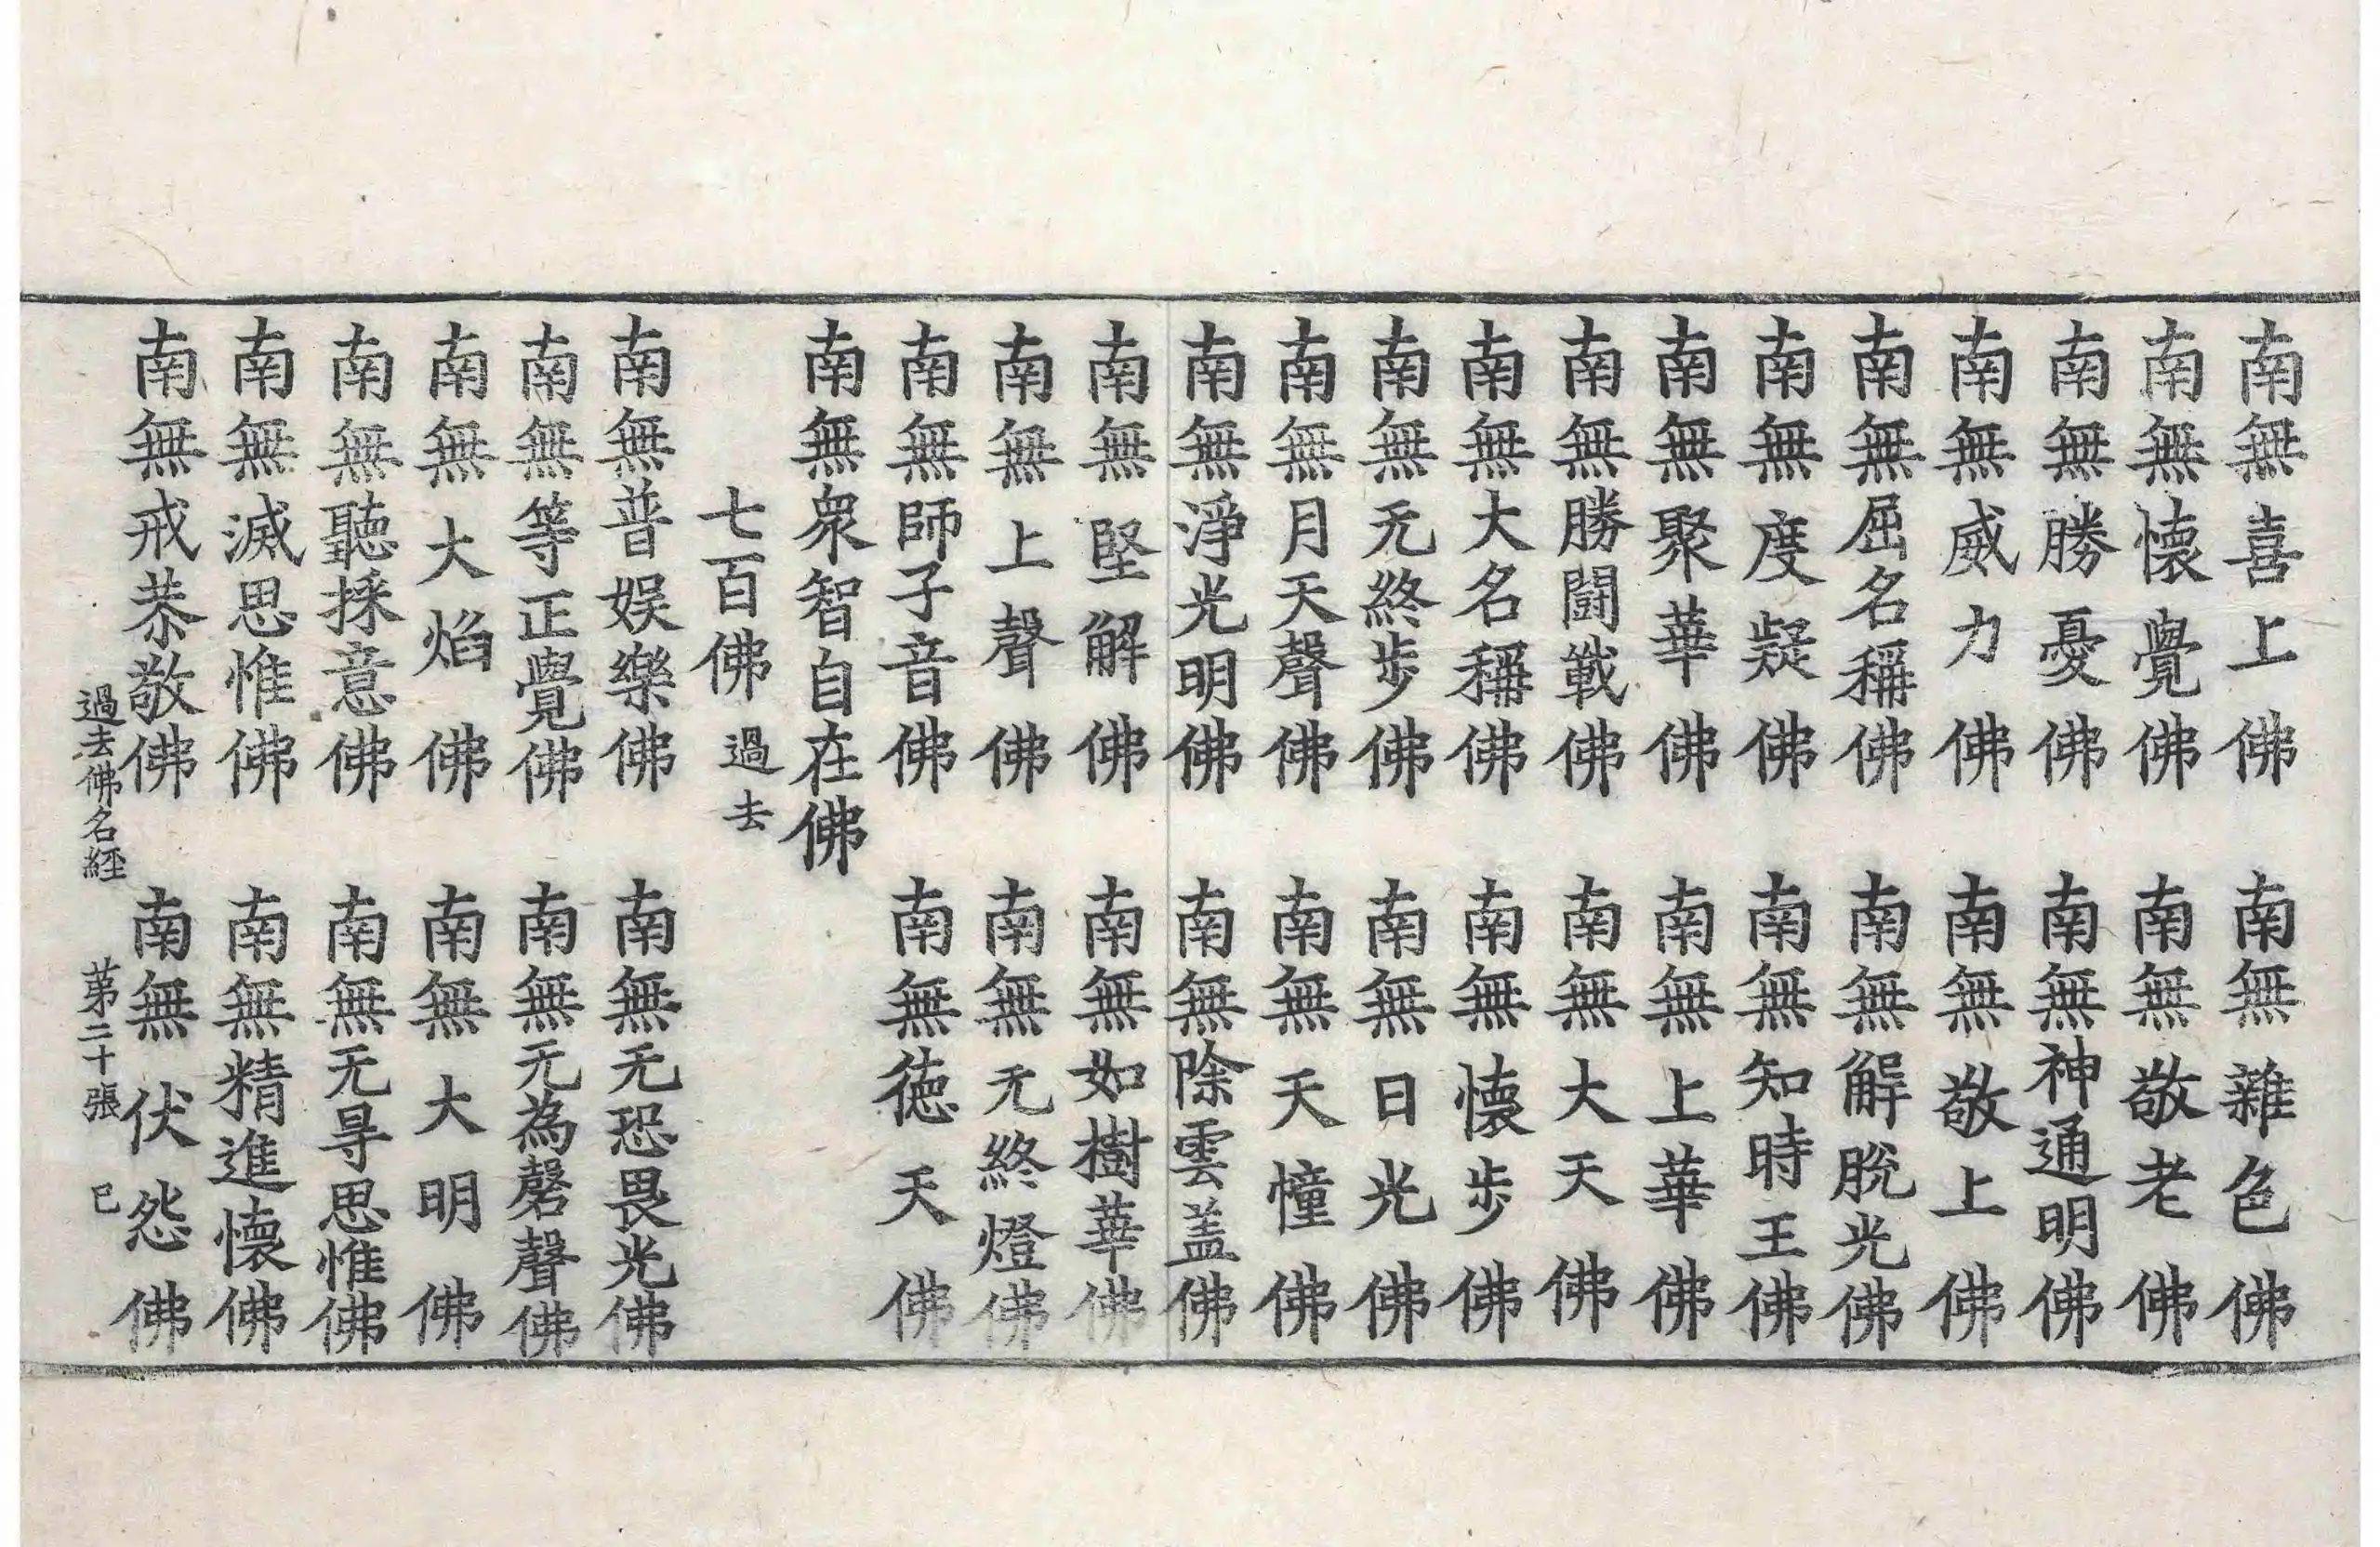 南無喜上佛 南無雜色佛
南無懐覺佛 南無敬老佛
南無勝憂佛 南無神通明佛
南無威力佛 南無敬上佛
南無屈名稱佛 南無解脫光佛
南無度疑佛 南無知時王佛
南無聚華佛 南無上華佛
南無勝闘戰佛 南無大天佛
南無大名稱佛 南無懐步佛
南無无終步佛 南無日光佛
南無月天聲佛 南無天憧佛
南無淨光明佛 南無除雲盖佛
南無堅解佛 南無如樹華佛
南無上聲佛 南無无終燈佛
南無師子音佛 南無德天佛
南無衆智自在佛
七百佛 過去
南無普娛樂佛 南無无恐畏光佛
南無等正覺佛 南無无為磬聲佛
南無大焰佛 南無大明佛
南無聽採意佛 南無无㝵思惟佛
南無滅思惟佛 南無精進懐佛
南無戒恭敬佛 南無伏怨佛
過去佛名經 苐二十張 已